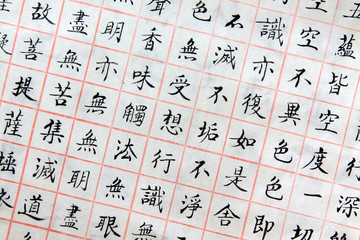 行深
皆空度一切
空不異色色即
識亦復如是舍
不滅不垢不淨
色無受想行識無
聲香味觸法無眼
明亦無無明盡
盡無苦集滅道
故菩提薩埵